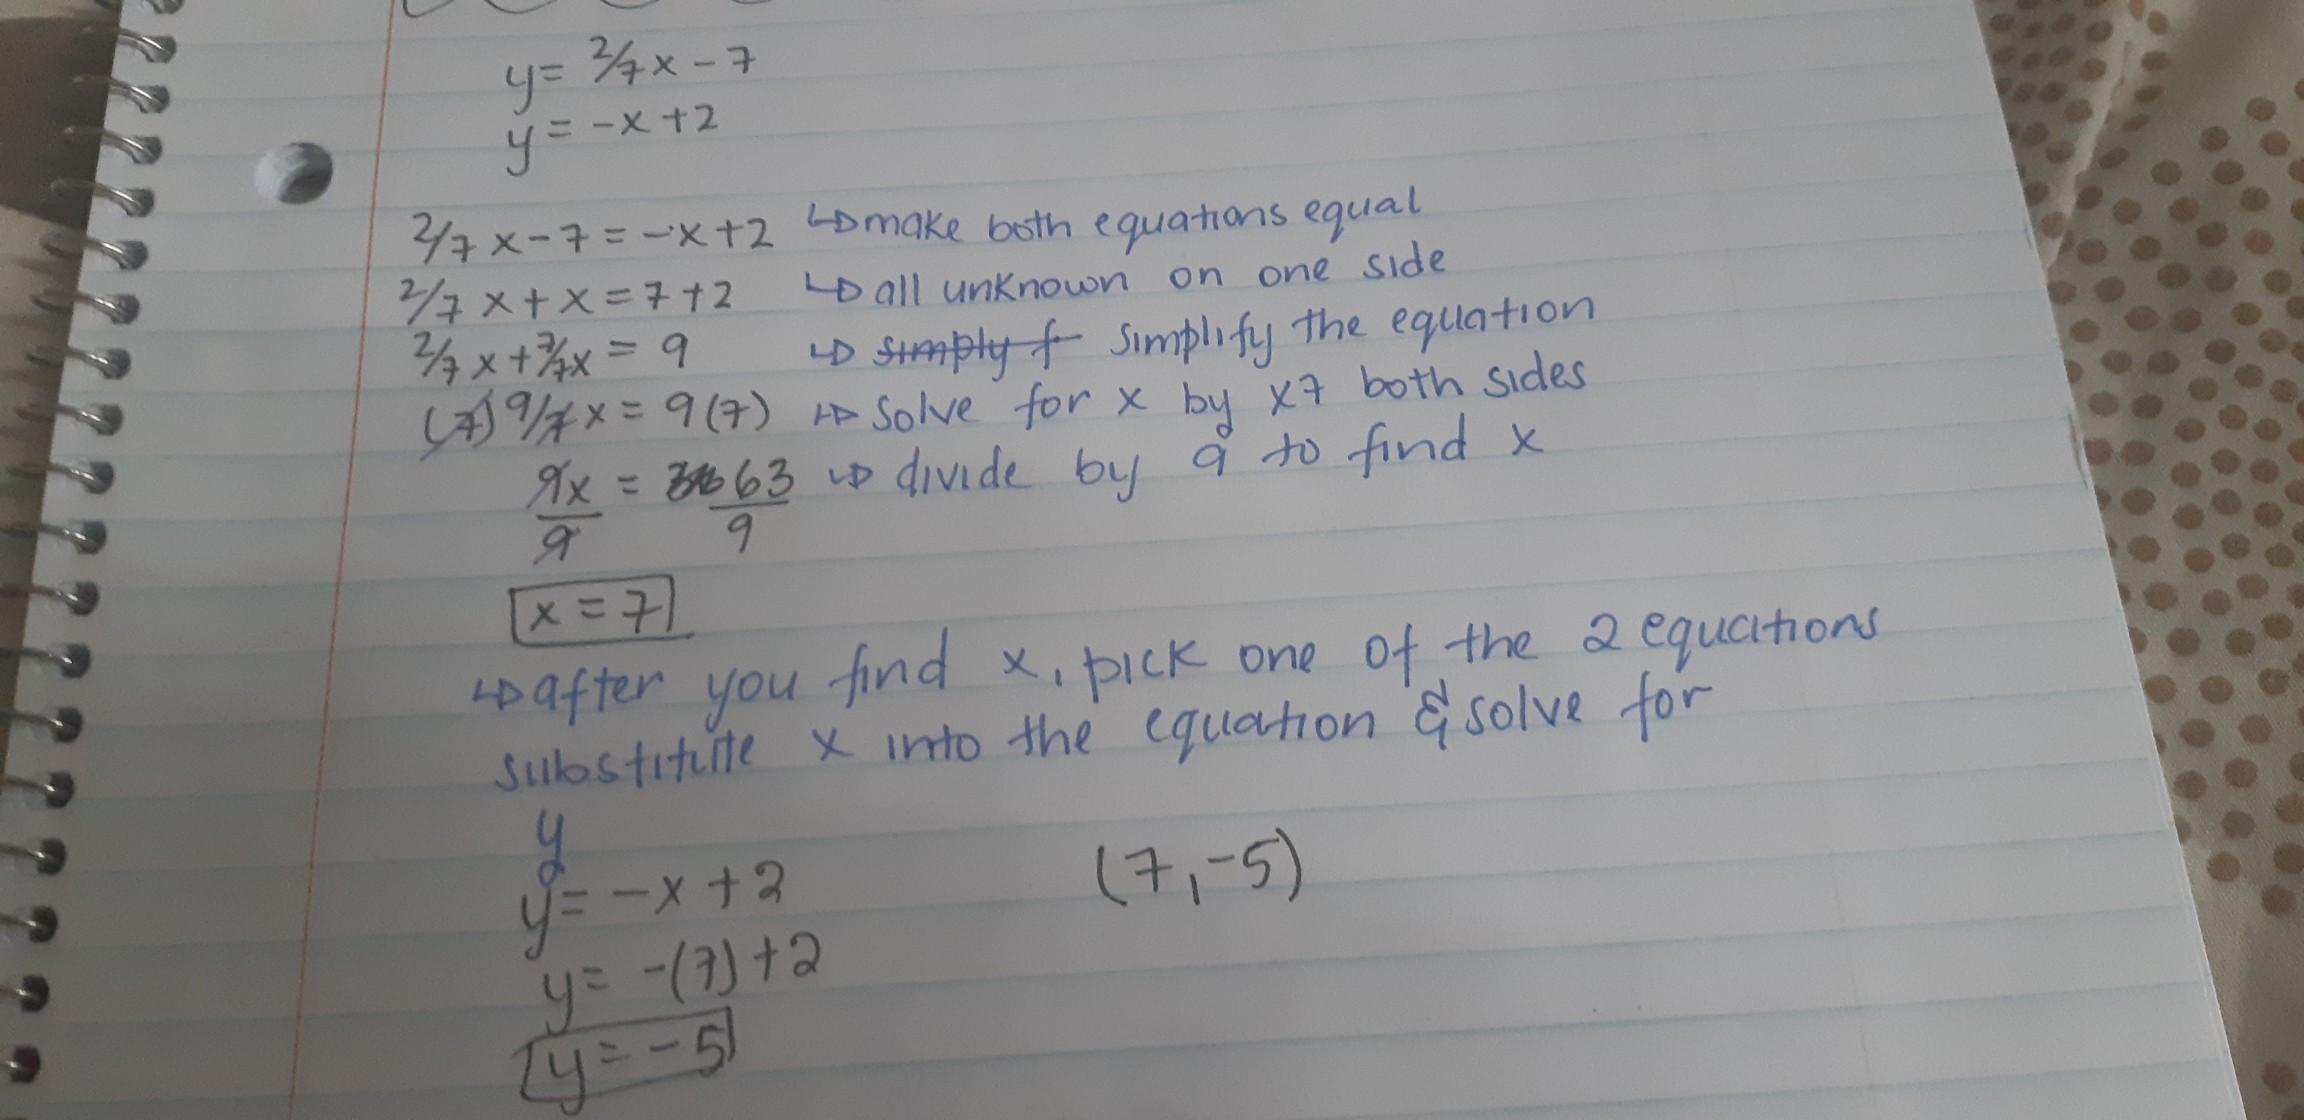 y = 2/7 x - 7
y = -x + 2
2/7 x - 7 = -x + 2 ↳ make both equations equal
2/7 x + x = 7 + 2 ↳ all unknown on one side
2/7 x + 7/7 x = 9 ↳ simply f simplify the equation
(7) 9/7 x = 9 (7) ↳ solve for x by x7 both sides
9x/9 = 63/9 ↳ divide by 9 to find x
x = 7
↳ after you find x, pick one of the 2 equations
substitute x into the equation & solve for
y
y = -x + 2 (7, -5)
y = -(7) + 2
y = -5